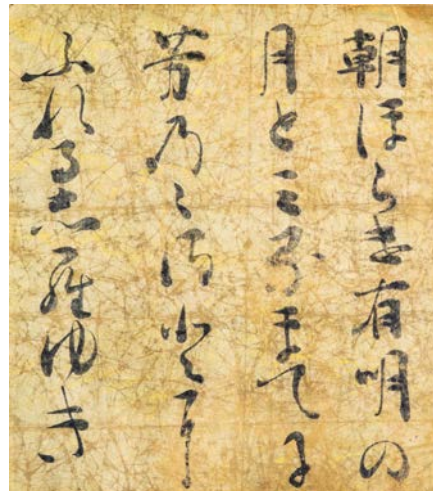 朝ほらけ有明の
月とミるまてに
芳乃ゝさと尓
ふれる志羅ゆき